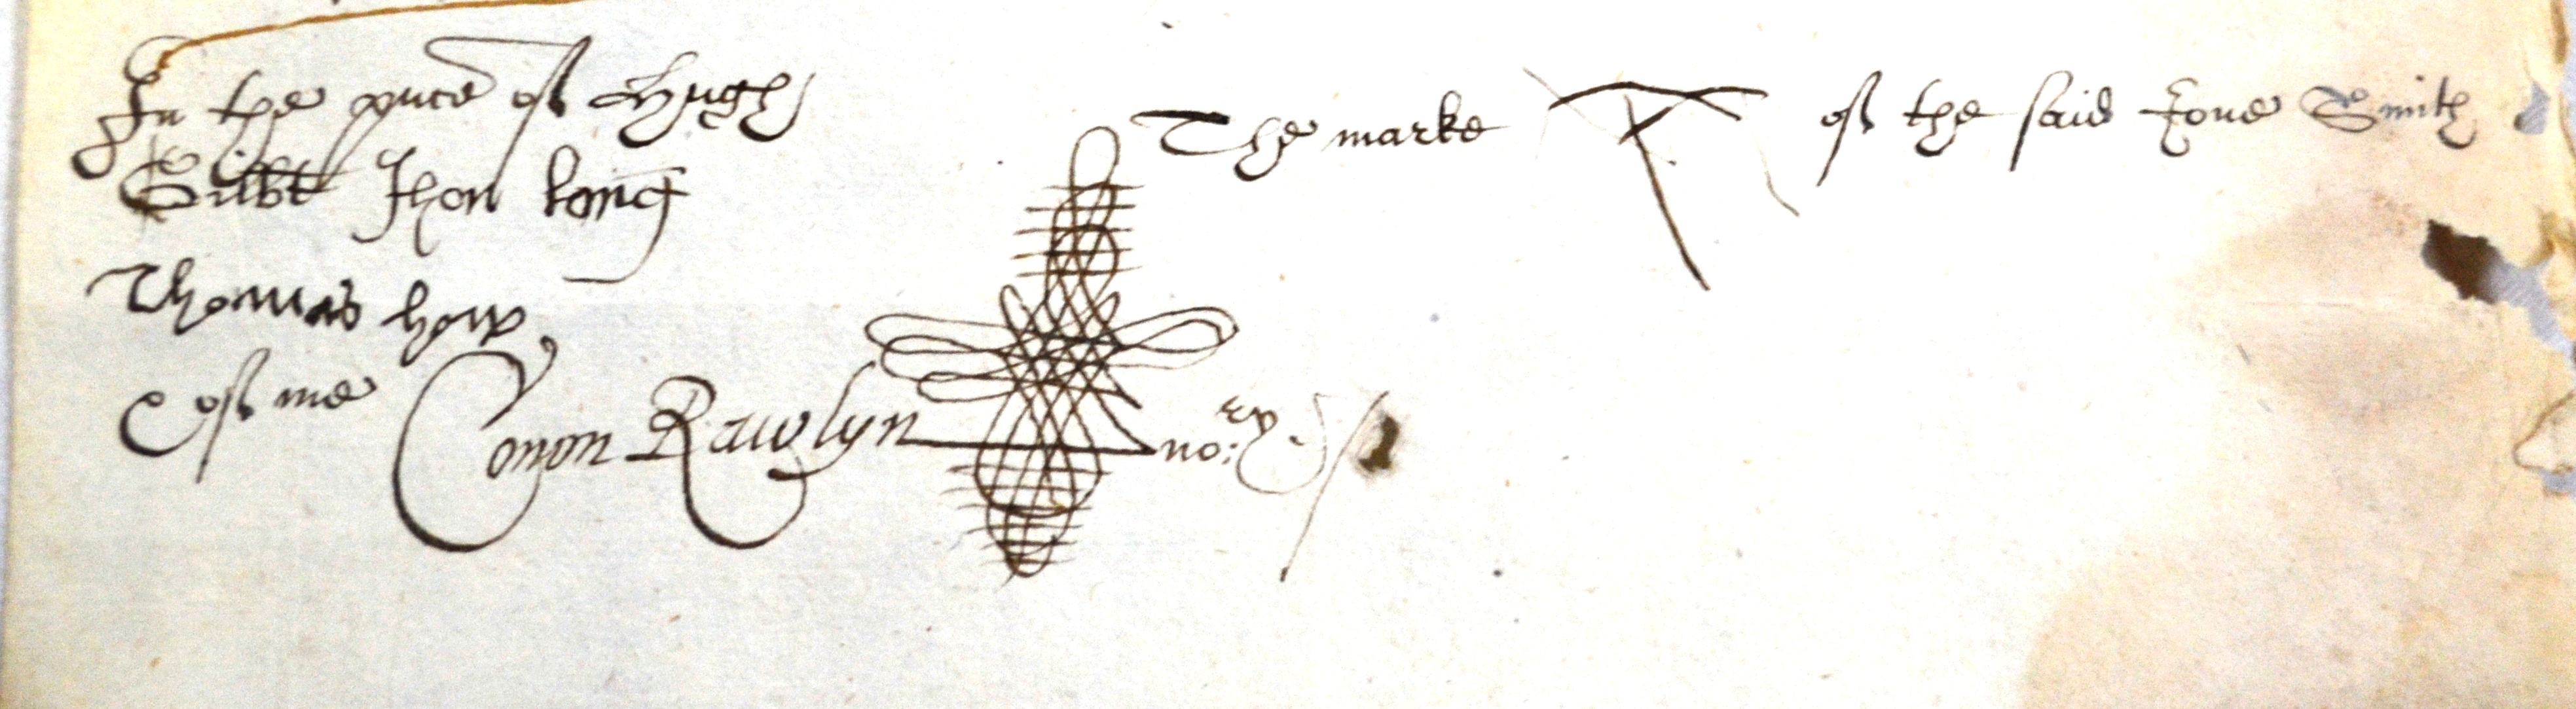 In the pnce of Hugh
Gilbt Jhon long
Thomas how
& of me Conon Rawlyn no:ry
The marke of the said Jone Smith